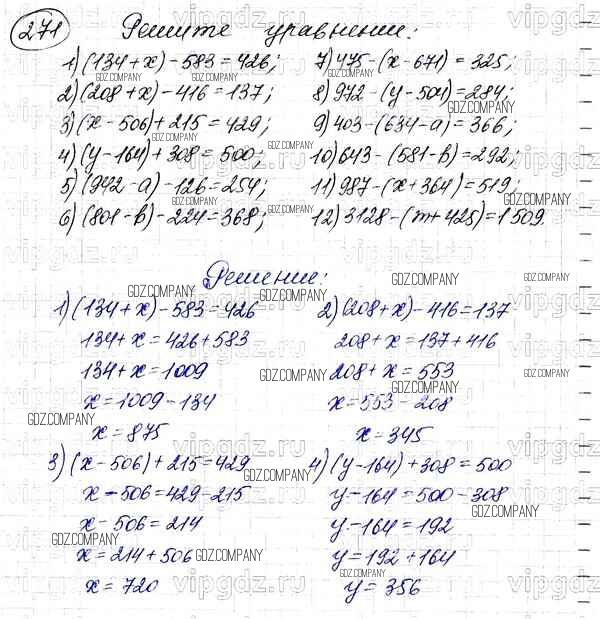 271 Решите уравнение:
1) (134+x)-583=426; 7) 475-(x-671)=325;
2) (208+x)-416=137; 8) 972-(y-504)=284;
3) (x-506)+215=429; 9) 403-(634-a)=366;
4) (y-164)+308=500; 10) 643-(581-b)=292;
5) (942-a)-126=254; 11) 987-(x+364)=519;
6) (801-b)-224=368; 12) 3128-(m+425)=1509.
Решение:
1) (134+x)-583=426 2) (208+x)-416=137
134+x=426+583 208+x=137+416
134+x=1009 208+x=553
x=1009-134 x=553-208
x=875 x=345
3) (x-506)+215=429 4) (y-164)+308=500
x-506=429-215 y-164=500-308
x-506=214 y-164=192
x=214+506 y=192+164
x=720 y=356
vipgdz.ru
GDZ.COMPANY